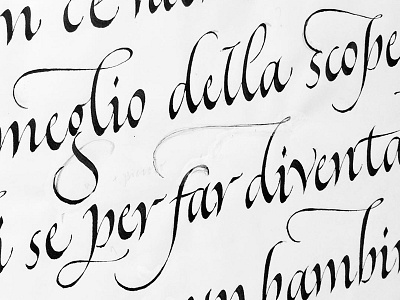 n ce
meglio della scope
i se per far diventa
un bambin